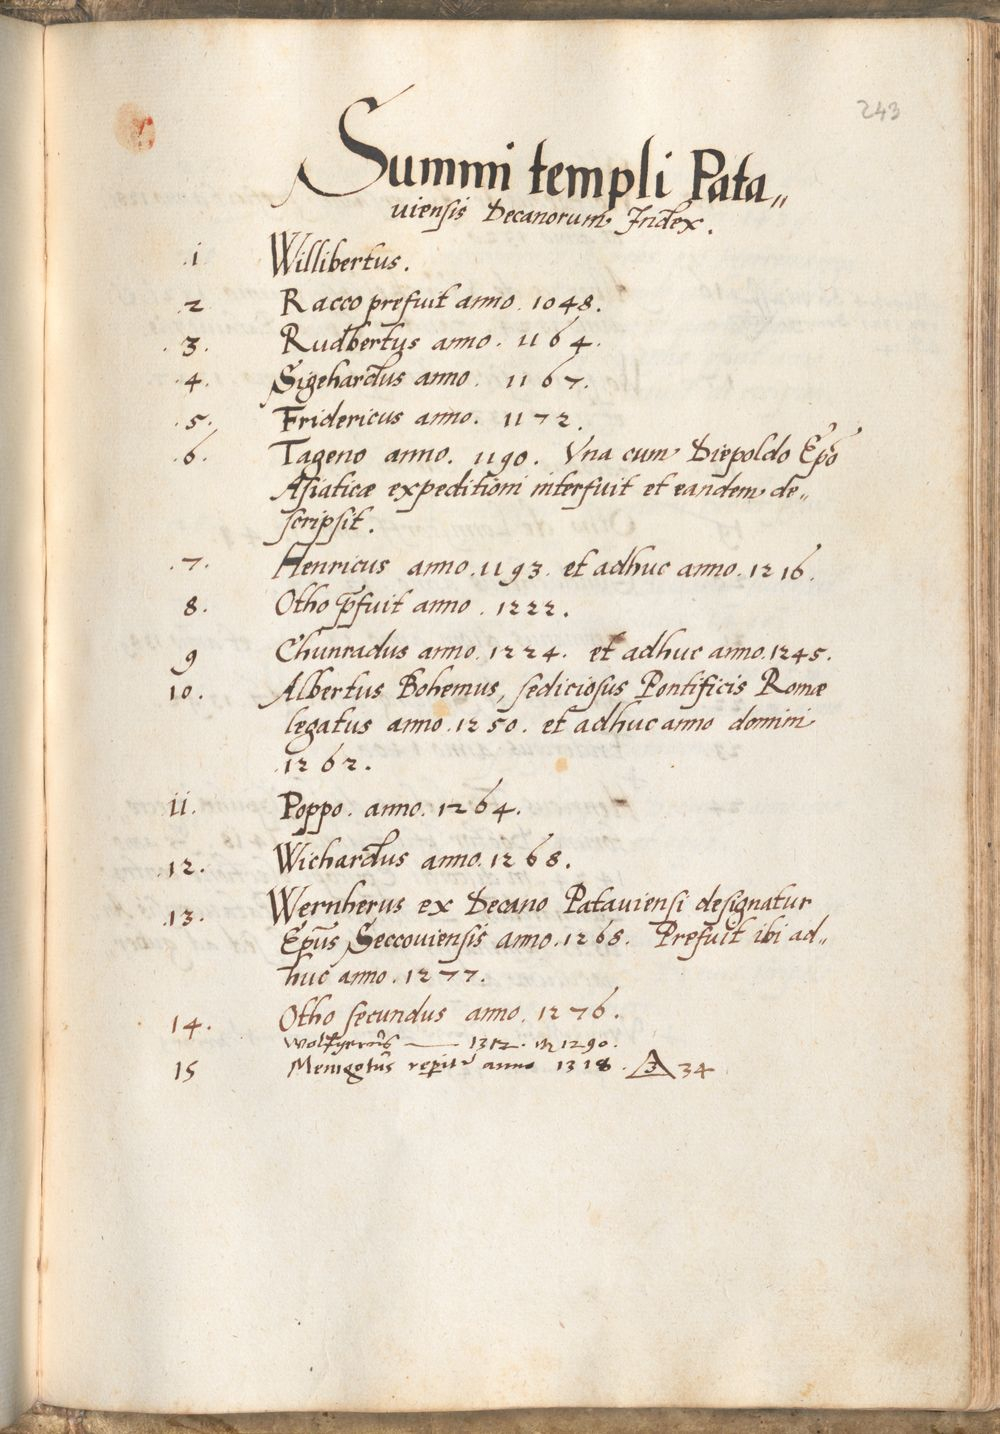 243
Summi templi Pata„
uiensis Decanorum Index.
1 Willibertus.
2 Racco prefuit anno. 1048.
3. Rudbertus anno. 1164.
4. Sigehardus anno. 1167.
5. Fridericus anno. 1172.
6. Tageno anno. 1190. Vna cum Diepoldo Epō
Asiaticæ expeditioni interfuit et eandem de„
scripsit.
7. Henricus anno. 1193. et adhuc anno. 1216.
8. Otho p̄fuit anno. 1222.
9 Chunradus anno. 1224. et adhuc anno. 1245.
10. Albertus Bohemus, sediciosus Pontificis Romæ
legatus anno. 1250. et adhuc anno domini
1262.
11. Poppo. anno. 1264.
12. Wichardus anno. 1268.
13. Wernherus ex Decano Patauiensi designatur
Ep̄us Seccouiensis anno. 1268. Prefuit ibi ad„
huc anno. 1277.
14. Otho secundus anno. 1276.
1312. in 1290.
15 Mengotus reperit᷑ anno 1318. 3 34